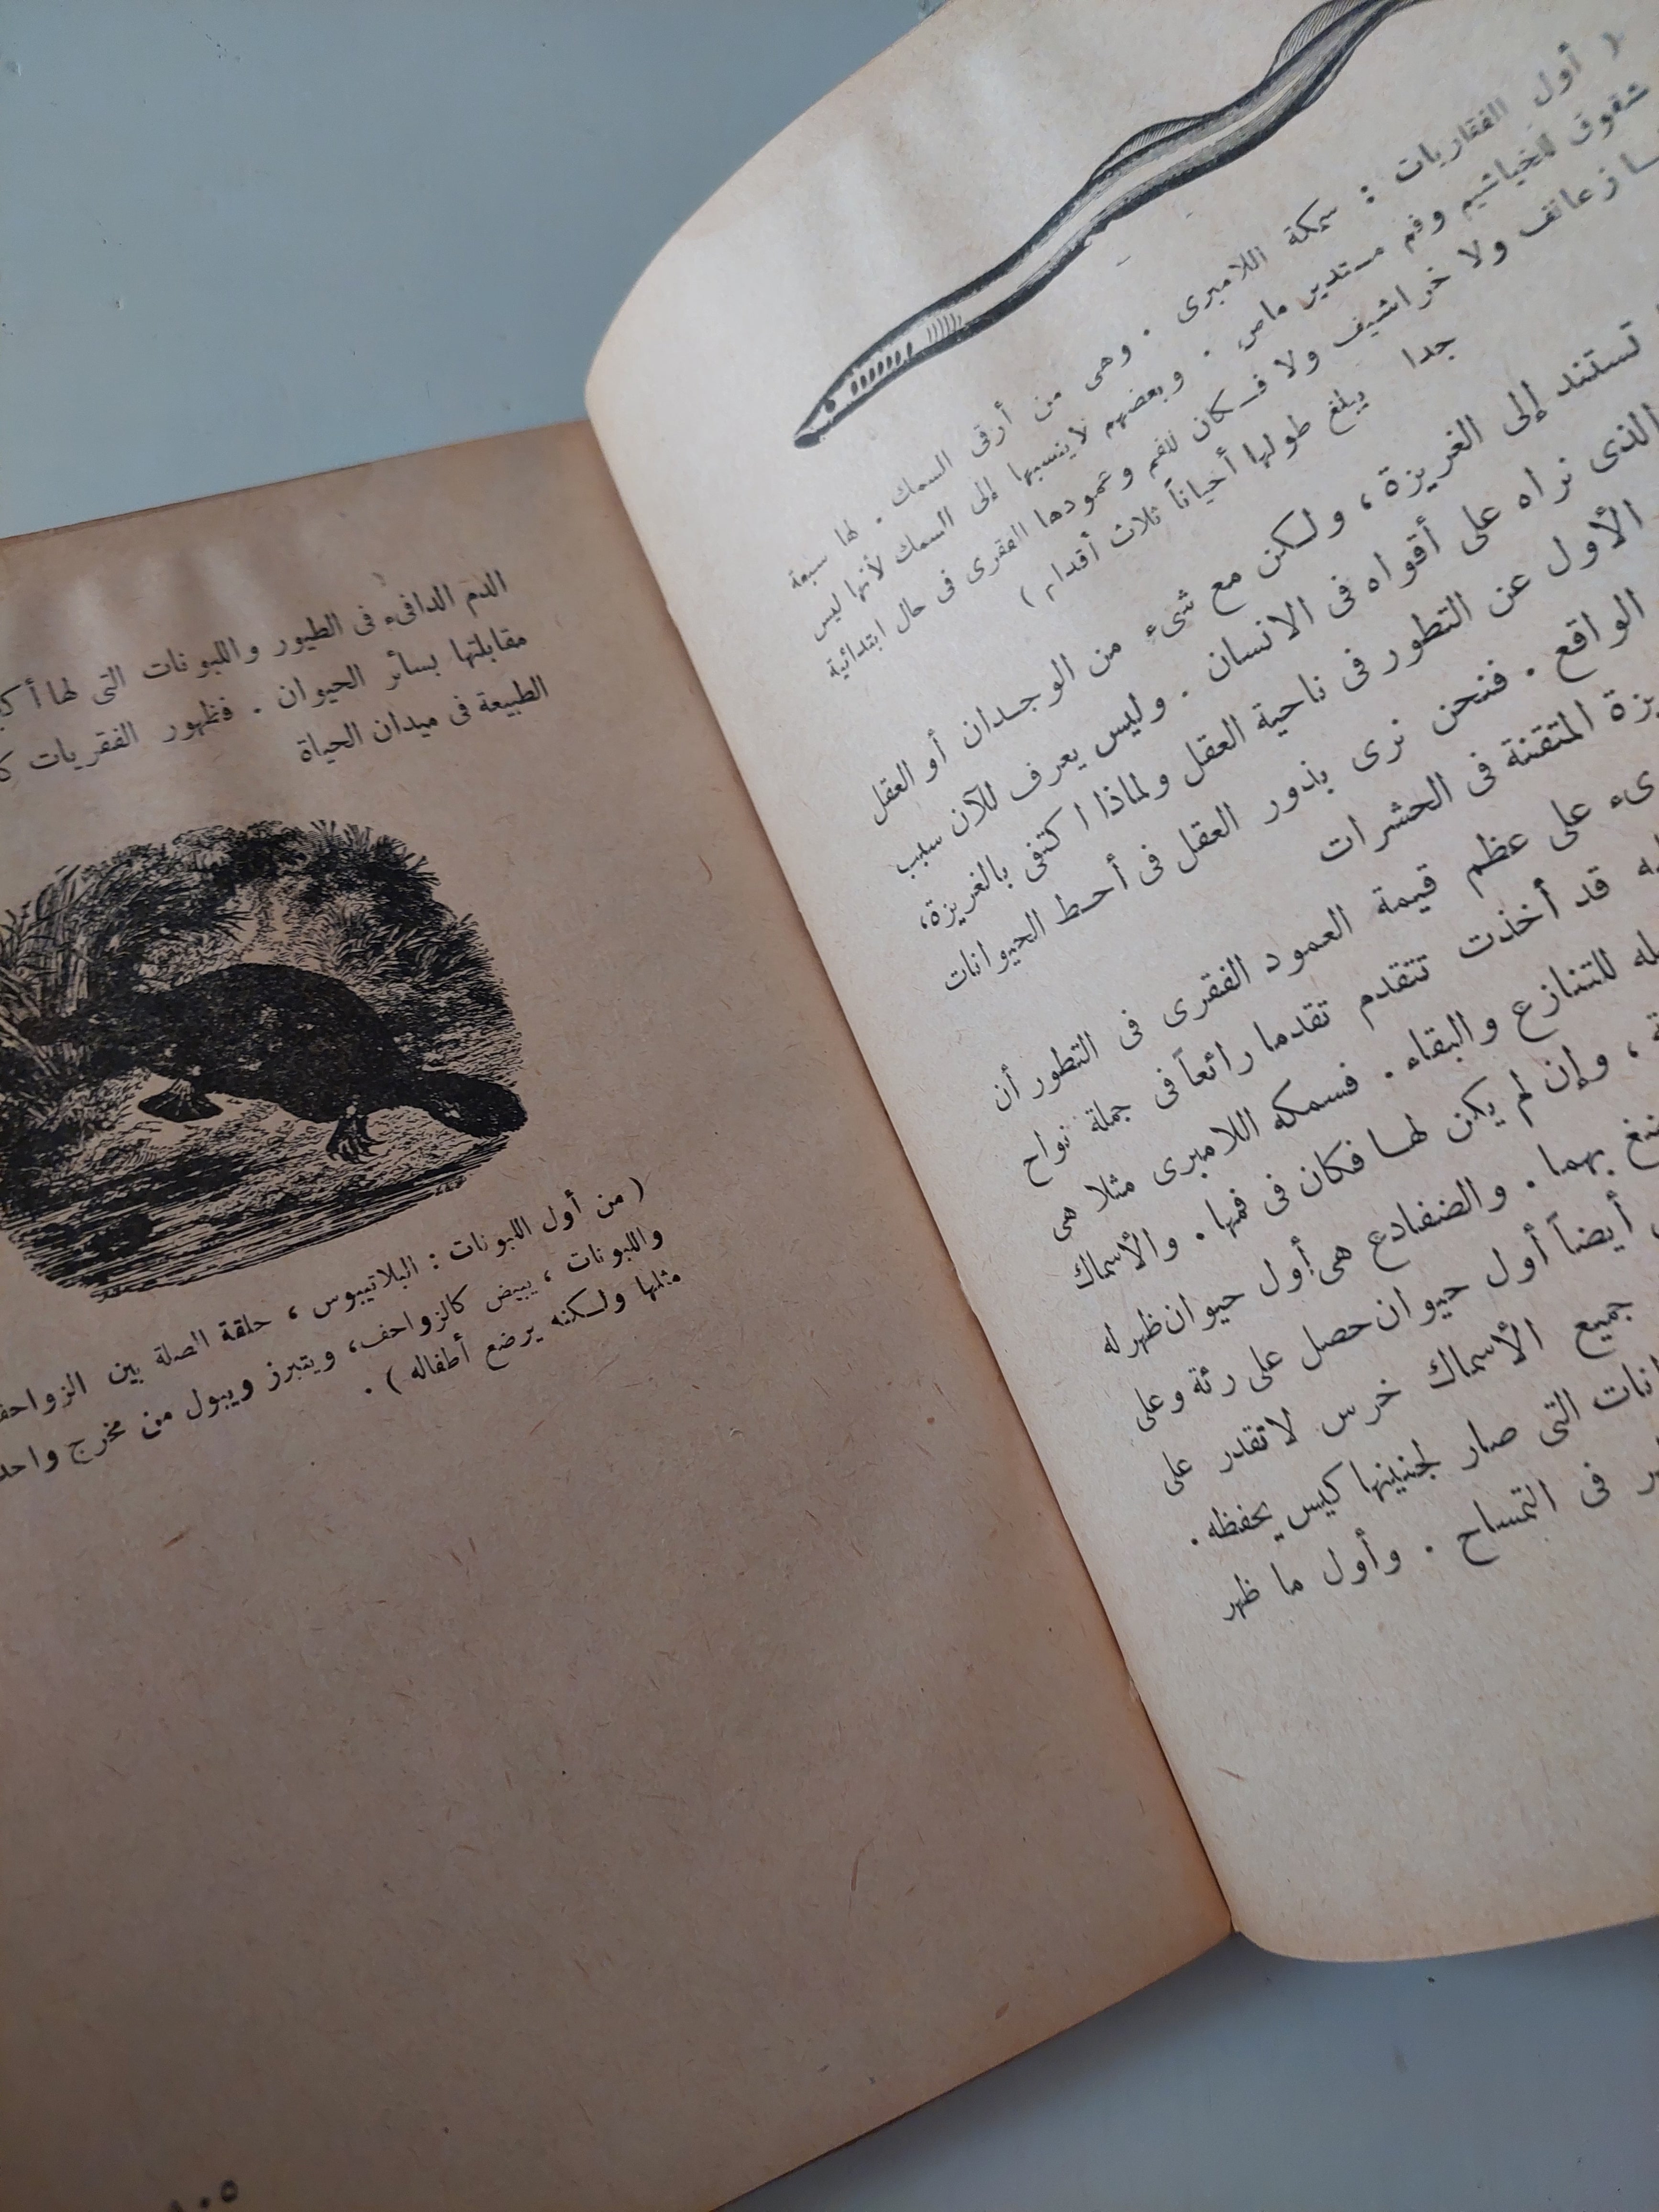 ( أول الفقاريات : سمكة اللامبرى . وهى من أرقى السمك . لها سبعة
شقوق للخياشيم وفم مستدير ماص . وبعضهم لا ينسبها إلى السمك لأنها ليس
زعانف ولا خراشيف ولا فكان للفم وعمودها الفقرى فى حال ابتدائية
جدا يبلغ طولها أحياناً ثلاث أقدام )
تستند إلى الغريزة ، ولكن مع شىء من الوجدان أو العقل
الذى نراه على أقواه فى الانسان . وليس يعرف للآن سبب
الأول عن التطور فى ناحية العقل ولماذا اكتفى بالغريزة،
الواقع . فنحن نرى بذور العقل فى أحط الحيوانات
المتقنة فى الحشرات
على عظم قيمة العمود الفقرى فى التطور أن
قد أخذت تتقدم تقدما رائعاً فى جملة نواح
للتنازع والبقاء . فسمكه اللامبرى مثلا هى
، وإن لم يكن لها فكان فى فمها . والأسماك
بهما . والضفادع هى أول حيوان ظهر له
أيضاً أول حيوان حصل على رئة وعلى
جميع الأسماك خرس لاتقدر على
التى صار لجنينها كيس يحفظه .
فى التمساح . وأول ما ظهر
الدم الدافىء فى الطيور واللبونات التى لها
مقابلتها بسائر الحيوان . فظهور الفقريات
الطبيعة فى ميدان الحياة
( من أول اللبونات : البلاتيبوس ، حلقة الصلة بين
واللبونات ، يبيض كالزواحف، ويتبرز ويبول من مخرج
مثلها ولكنه يرضع أطفاله ) .